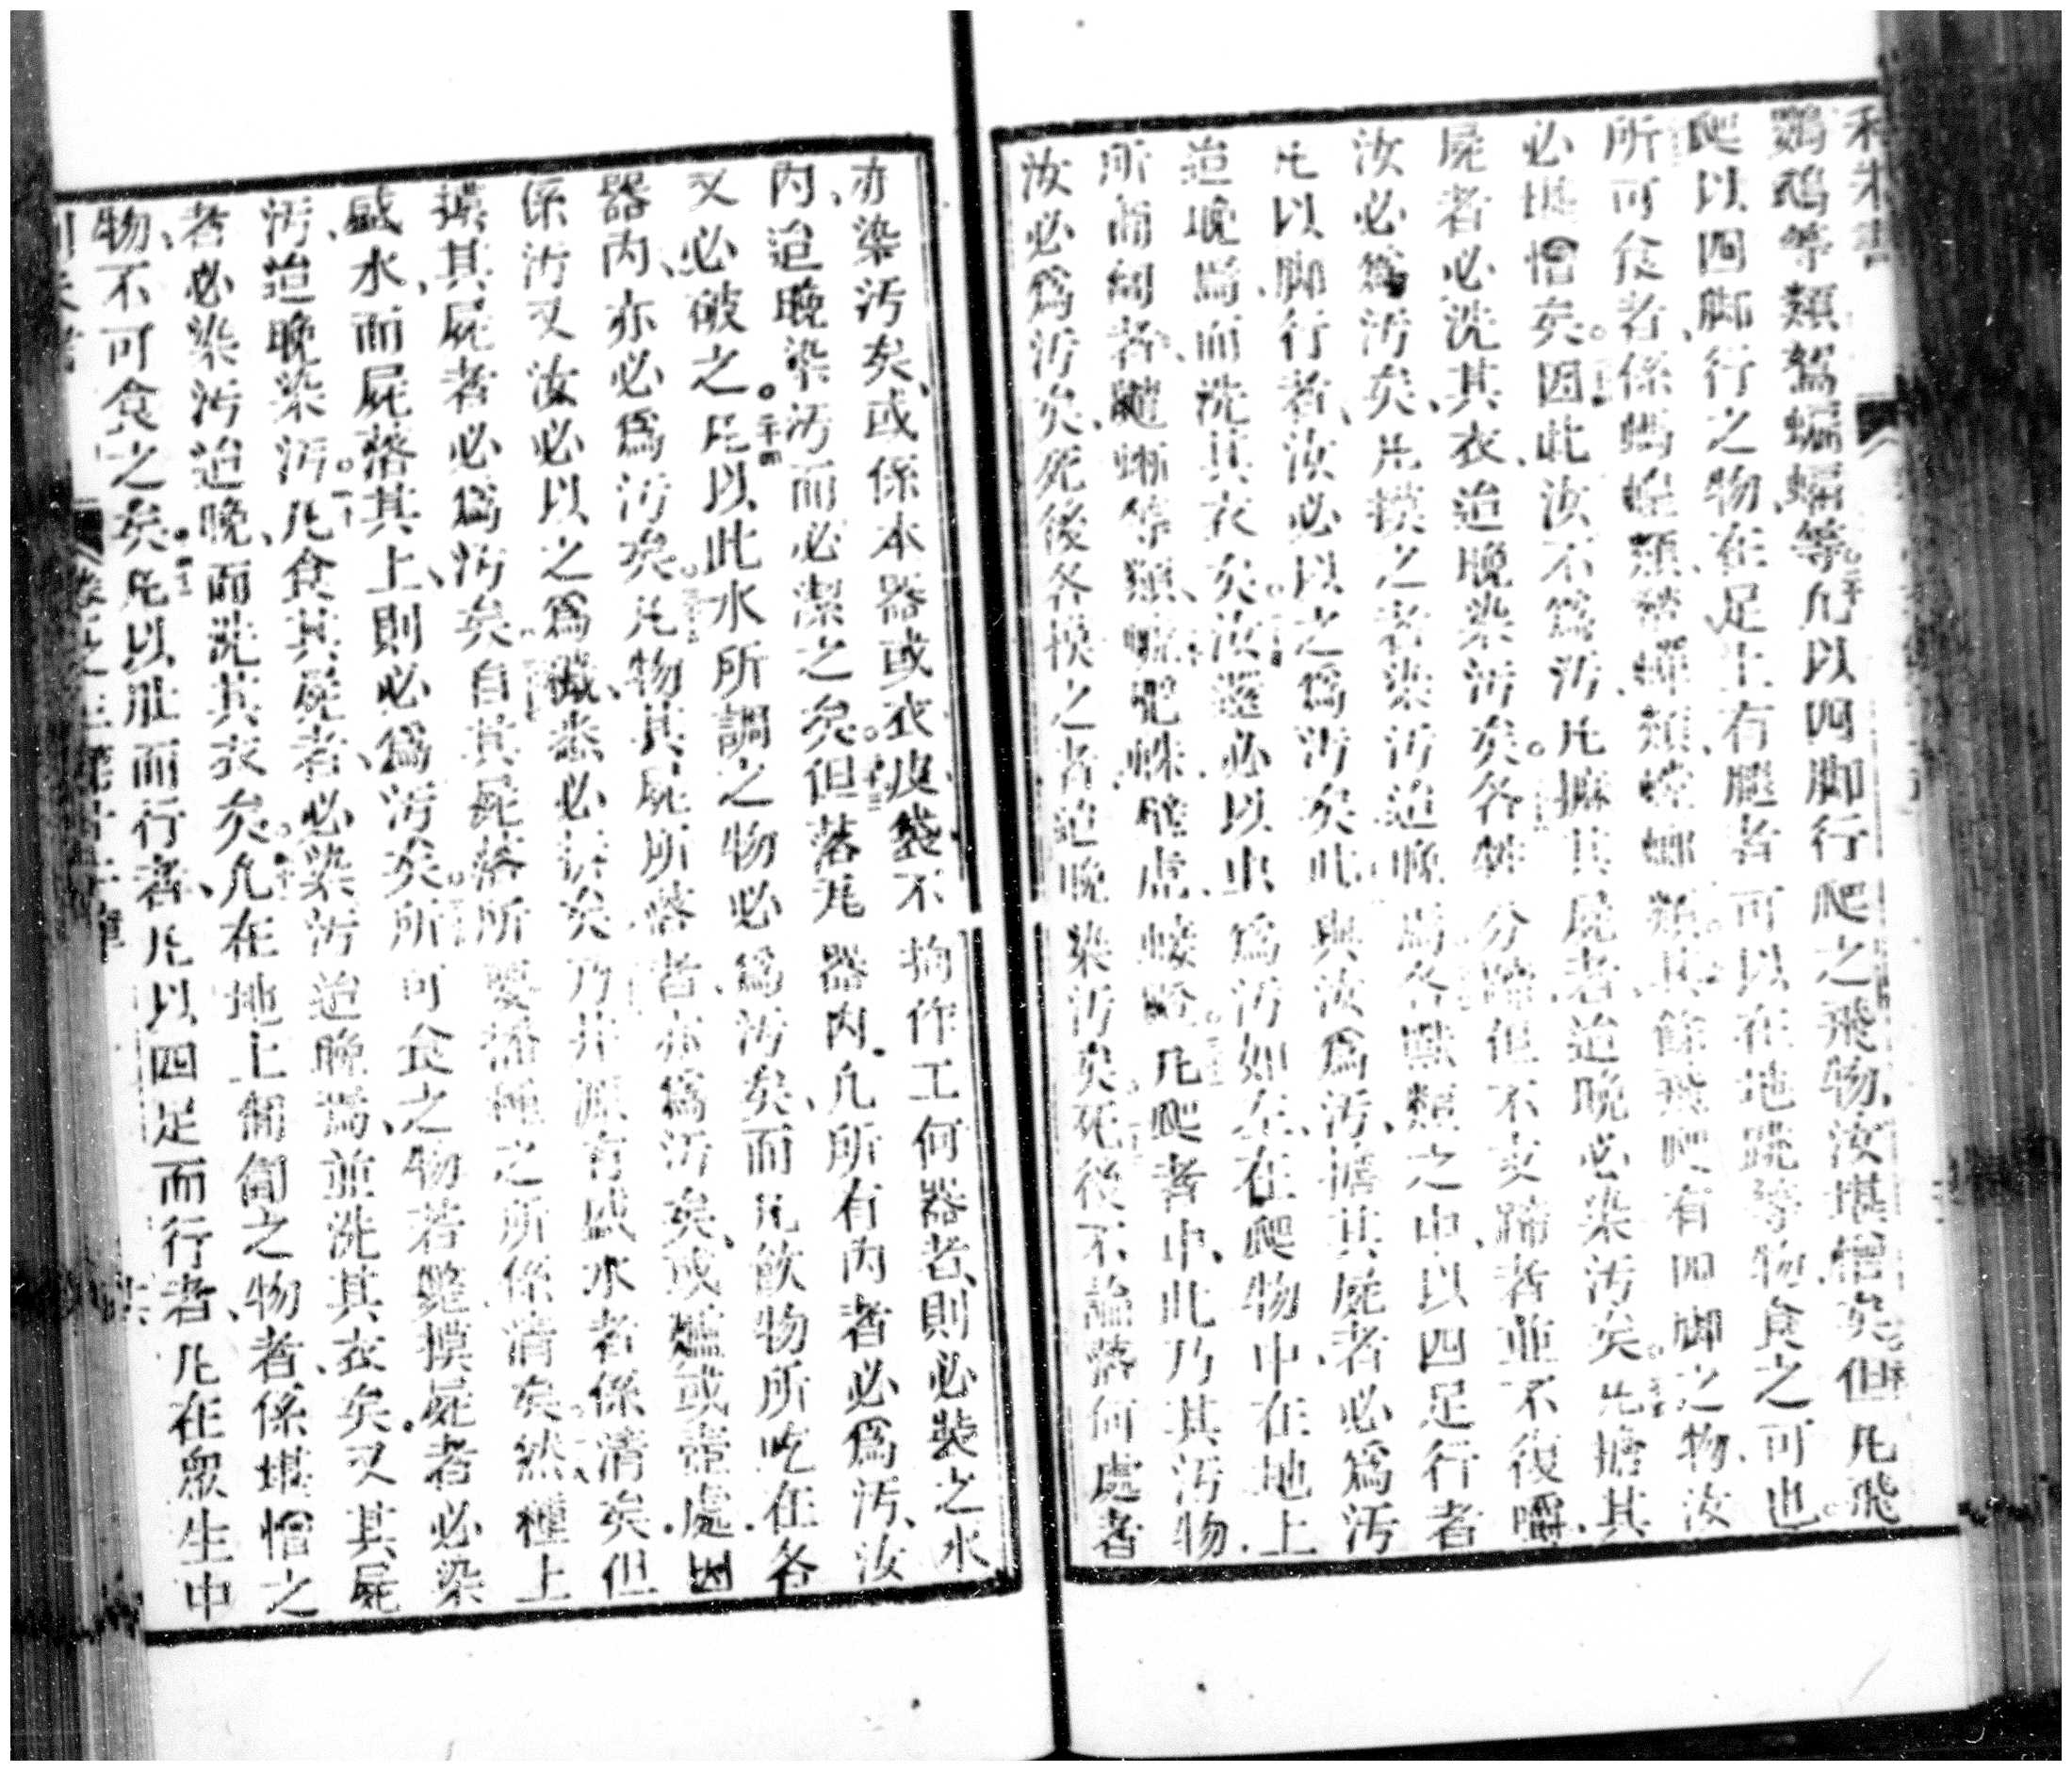 鸚鵡等類鴑蝙蝠等凡以四脚行爬之飛物、汝堪憎矣但凡飛
爬以四脚行之物、在足上有腿者可以在地跳等物食之可也
所可食者、係螞蝗類蟬類螳螂類其餘飛爬有四脚之物、汝
必堪憎矣因此汝不爲汚凡摸其屍者迨晚必染汚矣凡擔其
屍者必洗其衣、迨晚染汚矣各獸分蹄但不支蹄者並不復嚼、
汝必爲汚矣、凡摸之者染汚迨晚焉各獸類之中以四足行者
凡以脚行者、汝必以之爲汚矣此與汝爲汚、擔其屍者必爲汚
迨晚焉而洗其衣矣汝還必以此爲汚如左、在爬物中在地上
所匍匐者、等類、虎凡爬者中、此乃其汚物、
汝必爲汚矣、死後各摸之者迨晚染汚矣死後不論落何處者
亦染汚矣、或係本器或衣皮袋不拘作工何器者、則必裝之水
內、迨晚染汚而必潔之矣但落瓦器內、凡所有內者必爲汚、汝
又必破之。凡以此水所調之物必爲汚矣、而凡飲物所吃在各
器內、亦必爲汚矣。凡物其屍所落者亦爲汚矣、或爐或壺處、因
係汚又汝必以之爲穢、悉必折矣乃井源有盛水者係清矣、但
摸其屍者必爲汚矣自其屍落所要播種之所係清矣、然種上
盛水、而屍落其上、則必爲汚矣。所可食之物若斃摸屍者必染
汚迨晚染汚。凡食其屍者、必染汚迨晚焉、並洗其衣矣。又其屍
者必染汚迨晚、而洗其衣矣。凡在地上匍匐之物者、係堪憎之
物、不可食之矣。凡以肚而行者、凡以四足而行者、凡在眾生中